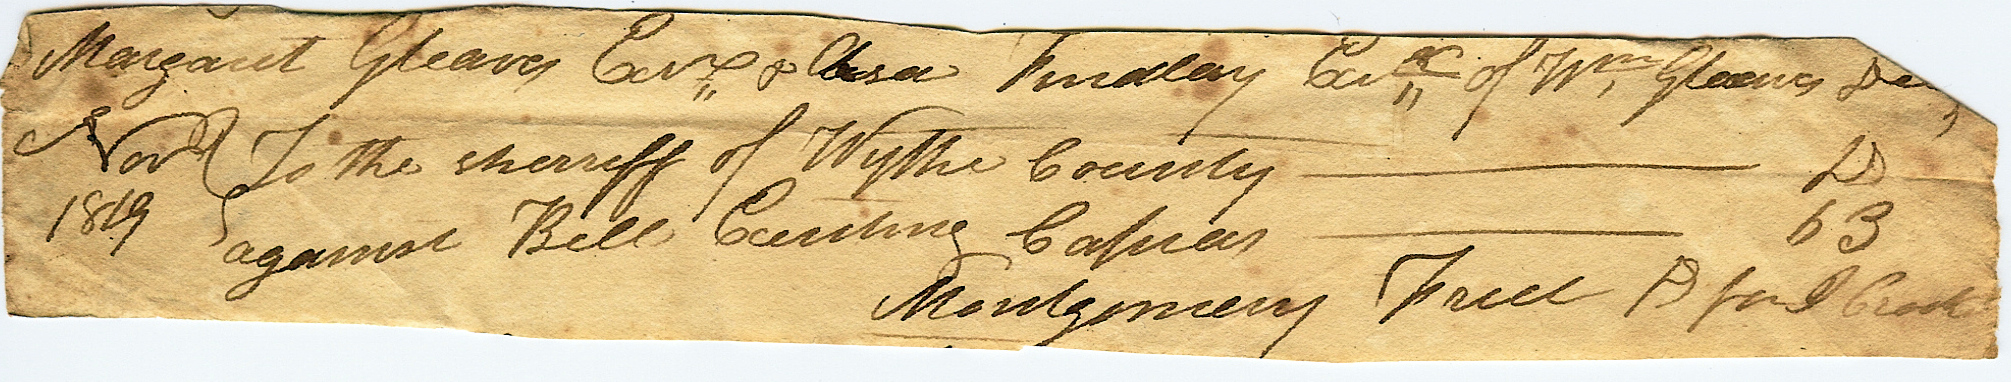 Margaret Gleaves Exrx & Asa Findlay Exr of Wm Gleaves Dec
Nov To the sherriff of Wythe County D
1819 against Bell Executing Capias 63
Montgomery Fred D for J Crock